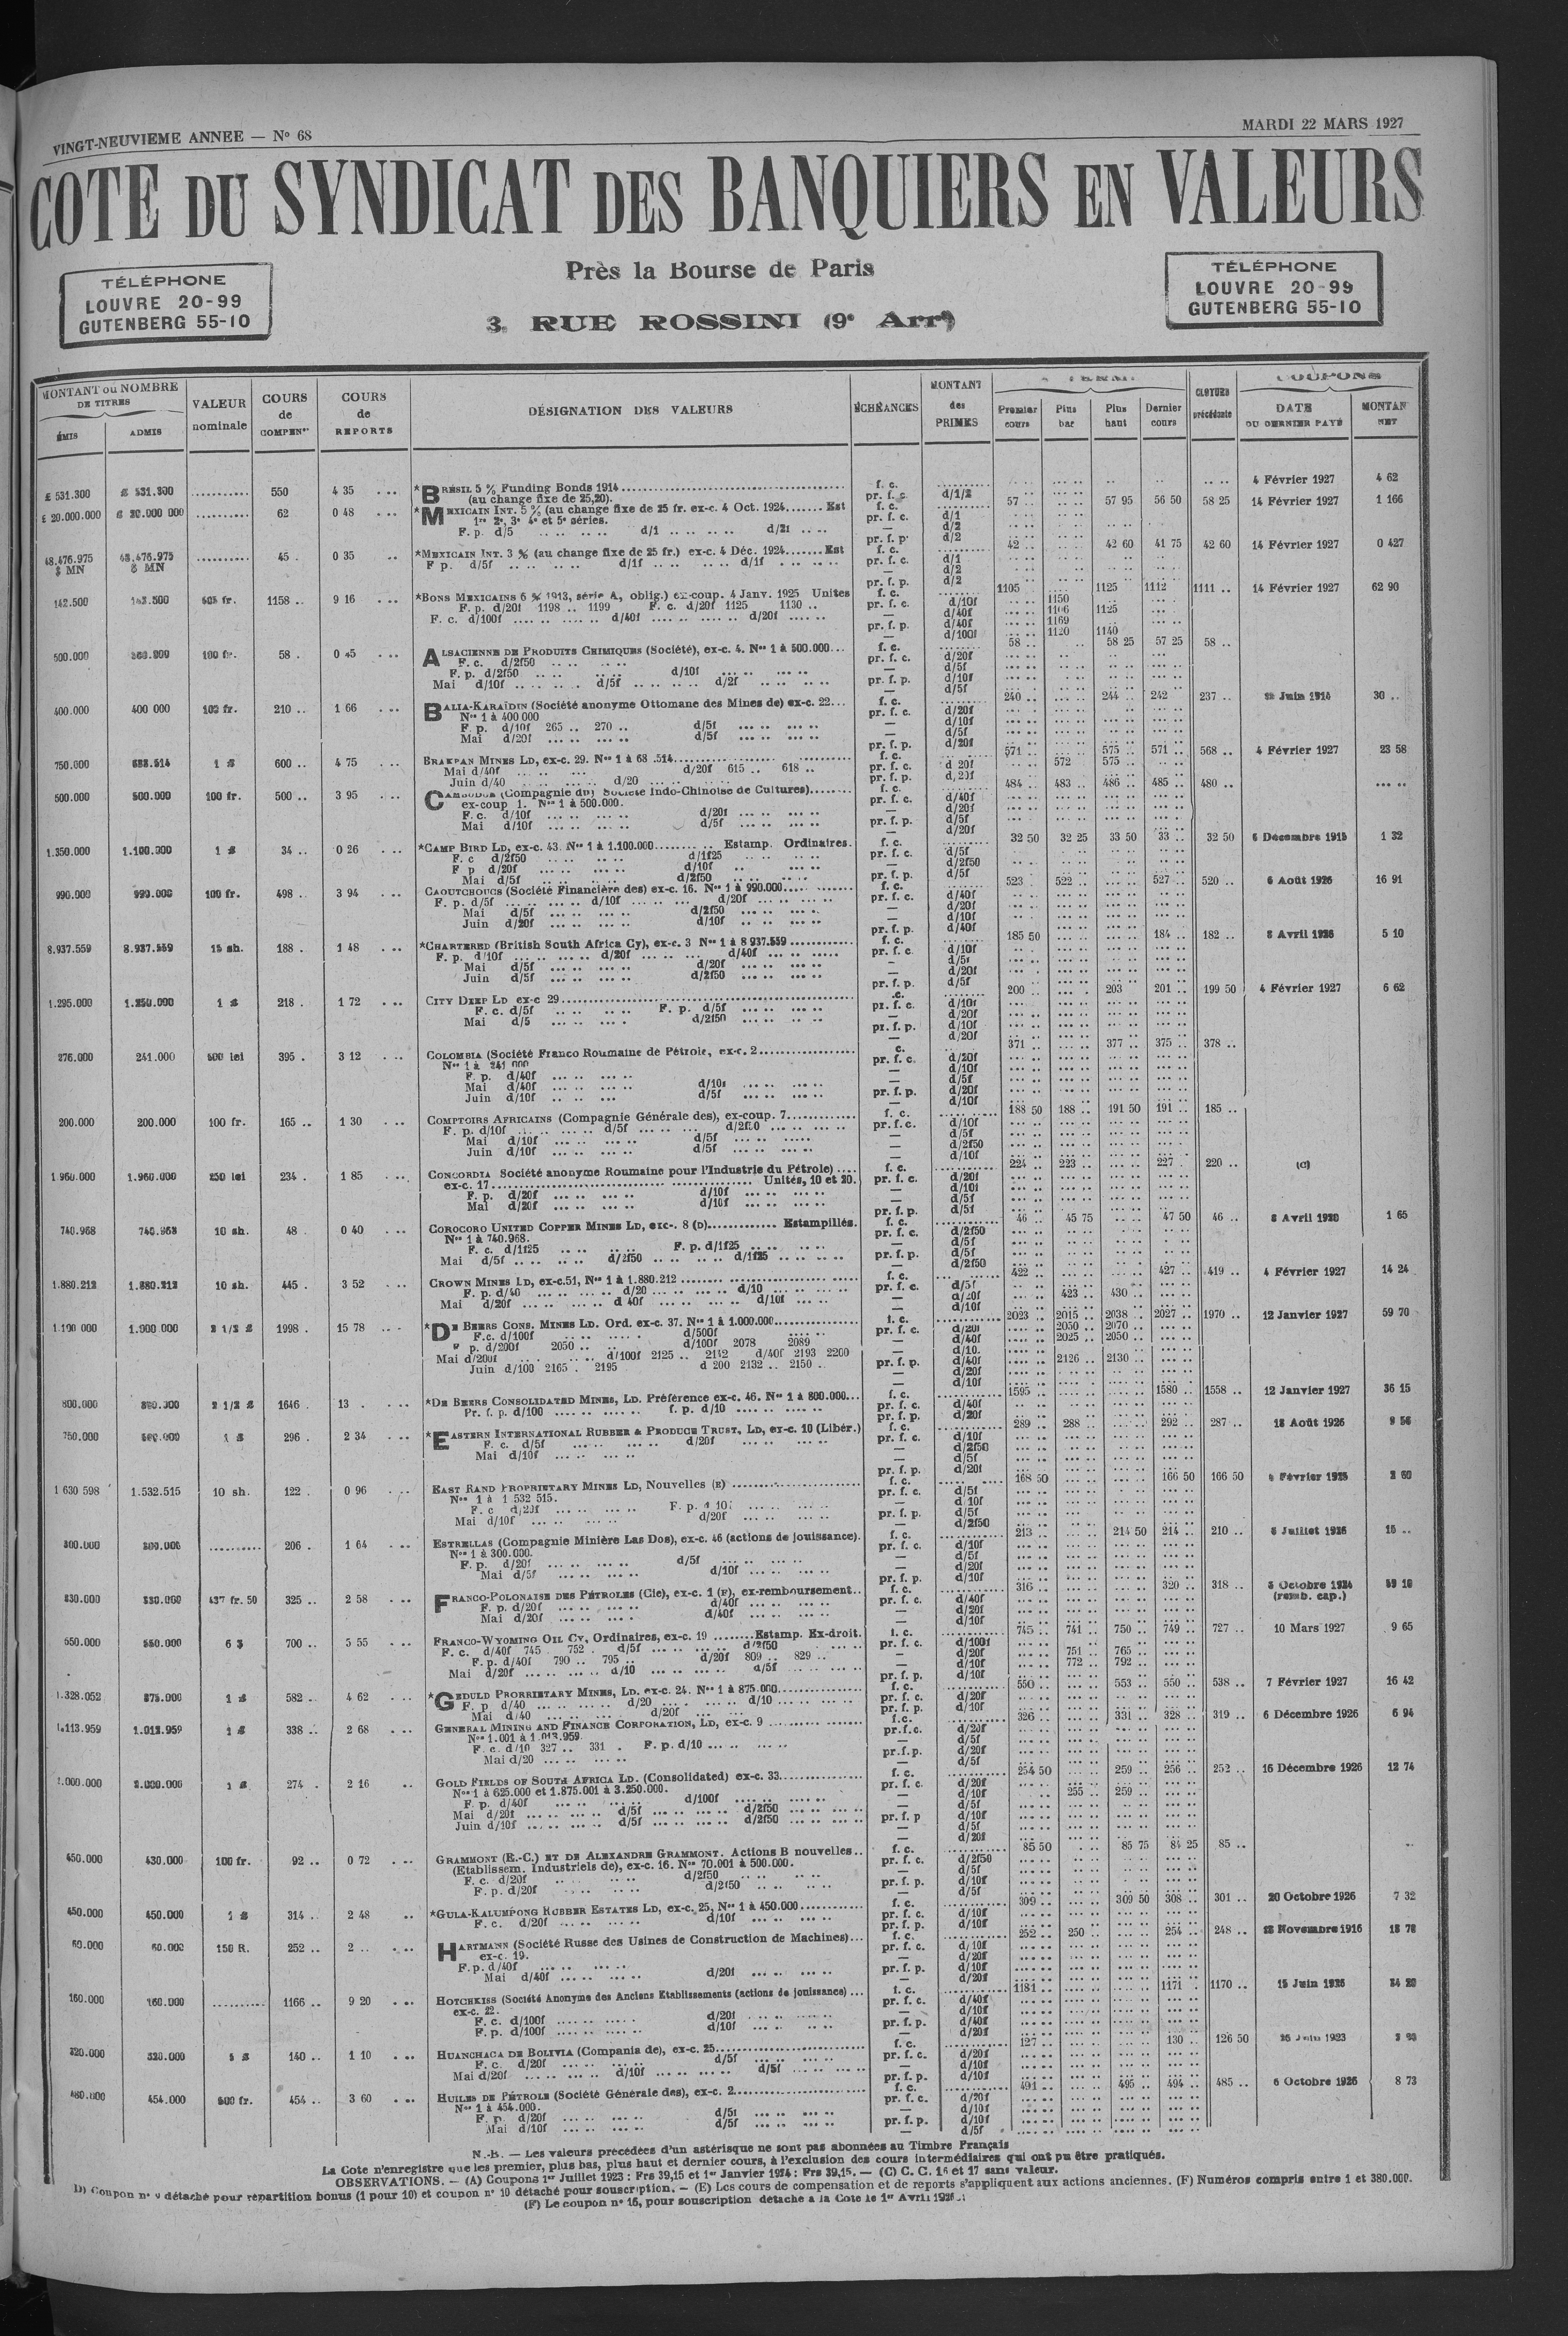 VINGT-NEUVIEME ANNEE — N° 68
MARDI 22 MARS 1927
COTE DU SYNDICAT DES BANQUIERS EN VALEURS
TÉLÉPHONE
LOUVRE 20-99
GUTENBERG 55-10
Près la Bourse de Paris
3, RUE ROSSINI (9e Arrt)
TÉLÉPHONE
LOUVRE 20-99
GUTENBERG 55-10
MONTANT ou NOMBRE DE TITRES
ÉMIS ADMIS
VALEUR nominale
COURS de COMPENon
COURS de REPORTS
DÉSIGNATION DES VALEURS
ÉCHÉANCES
MONTANT des PRIMES
Premier cours Plus bas Plus haut Dernier cours
CLOTURE précédente
COUPONS
DATE DU DERNIER PAYÉ
MONTANT NET
£ 531.300 £ 531.300 550 4 35 *BRÉSIL 5 % Funding Bonds 1914 f. c. 4 Février 1927 4 62
(au change fixe de 25,20). pr. f. c. d/1/2
£ 20.000.000 62 0 48 *MEXICAIN INT. 5 % (au change fixe de 25 fr. ex-c. 4 Oct. 1924 Est f. c. 57 57 95 56 50 58 25 14 Février 1927 1 166
1re 2e, 3e 4e et 5e séries. pr. f. c. d/1
F. p. d/5 d/1 d/21 — d/2
pr. f. p. d/2
48.476.975 $ MN 48.476.975 $ MN 45 0 35 *MEXICAIN INT. 3 % (au change fixe de 25 fr.) ex-c. 4 Déc. 1924 Est f. c. 42 42 60 41 75 42 60 14 Février 1927 0 427
F p. d/5f d/1f d/1f pr. f. c. d/1
— d/2
pr. f. p. d/2
142.500 1158 9 16 *BONS MEXICAINS 6 % 1913, série A, oblig.) ex-coup. 4 Janv. 1925 Unités f. c. 1105 1125 1112 1111 14 Février 1927 62 90
F. p. d/20f 1198 1199 F. c. d/20f 1125 1130 pr. f. c. d/10f 1150
F. c. d/100f d/40f d/20f — d/40f 1106 1125
pr. f. p. d/40f 1169
d/100f 1120 1140
500.000 100 fr. 58 0 45 ALSACIENNE DE PRODUITS CHIMIQUES (Société), ex-c. 4. Nos 1 à 500.000 f. c. 58 58 25 57 25 58
F. c. d/2f50 pr. f. c. d/20f
F. p. d/2f50 d/10f — d/5f
Mai d/10f d/5f d/2f pr. f. p. d/10f
— d/5f
400.000 400 000 100 fr. 210 1 66 BALIA-KARAÏDIN (Société anonyme Ottomane des Mines de) ex-c. 22 f. c. 240 244 242 237 30
Nos 1 à 400 000 pr. f. c. d/20f
F. p. d/10f 265 270 d/5f — d/10f
Mai d/20f d/5f — d/5f
pr. f. p. d/20f
750.000 1 £ 600 4 75 BRAKPAN MINES LD, ex-c. 29. f. c. 571 575 571 568 4 Février 1927 23 58
Mai d/40f d/20f 615 618 pr. f. c. d 20f 572 575
Juin d/40 d/20 pr. f. p.
500.000 500.000 100 fr. 500 3 95 CAMBODGE (Compagnie du) Société Indo-Chinoise de Cultures) f. c. 484 483 486 485 480
ex-coup 1. Nos 1 à 500.000. pr. f. c. d/40f
F. c. d/10f d/20f — d/20f
Mai d/10f d/5f pr. f. p. d/5f
— d/20f
1.350.000 1.100.000 1 £ 34 0 26 *CAMP BIRD LD, ex-c. 43. Nos 1 à 1.100.000 Estamp. Ordinaires. f. c. 32 50 32 25 33 50 33 32 50 6 Décembre 1915 1 32
F. c d/2f50 d/1f25 pr. f. c. d/5f
F p d/20f d/10f — d/2f50
Mai d/5f d/2f50 pr. f. p. d/5f
990.000 990.000 100 fr. 498 3 94 CAOUTCHOUCS (Société Financière des) ex-c. 16. Nos 1 à 990.000 f. c. 523 522 527 520 6 Août 1926 16 91
F. p. d/5f d/10f d/20f pr. f. c. d/40f
Mai d/5f d/2f50 — d/20f
Juin d/20f d/10f — d/10f
pr. f. p. d/40f
8.937.559 8.937.559 15 sh. 188 1 48 *CHARTERED (British South Africa Cy), ex-c. 3 Nos 1 à 8 937.559 f. c. 185 50 184 182 5 10
F. p. d/10f d/20f d/40f pr. f. c. d/10f
Mai d/5f d/20f — d/5f
Juin d/5f d/2f50 — d/20f
pr. f. p. d/5f
1.295.000 1.250.000 1 £ 218 1 72 CITY DEEP LD ex-c 29 200 203 201 199 50 4 Février 1927 6 62
F. c. d/5f F. p. d/5f pr. f. c. d/10f
Mai d/5 d/2f50 — d/20f
pr. f. p. d/10f
— d/20f
276.000 241.000 500 lei 395 3 12 COLOMBIA (Société Franco Roumaine de Pétrole, ex-c. 2 371 377 375 378
Nos 1 à 241 000 pr. f. c. d/20f
F. p. d/40f — d/10f
Mai d/40f d/10f — d/5f
Juin d/10f d/5f pr. f. p. d/20f
— d/10f
200.000 200.000 100 fr. 165 1 30 COMPTOIRS AFRICAINS (Compagnie Générale des), ex-coup. 7 f. c. 188 50 188 191 50 191 185
F. p. d/10f d/5f d/2f50 pr. f. c. d/10f
Mai d/10f d/5f — d/5f
Juin d/10f d/5f — d/2f50
— d/10f
1 960.000 1.960.000 250 lei 234 1 85 CONCORDIA Société anonyme Roumaine pour l'Industrie du Pétrole) f. c. 224 223 227 220 (C)
ex-c. 17 Unités, 10 et 20. pr. f. c. d/20f
F. p. d/20f d/10f — d/10f
Mai d/20f d/10f — d/5f
pr. f. p. d/5f
740.968 740.968 10 sh. 48 0 40 COROCORO UNITED COPPER MINES LD, exc-. 8 (D) Estampillés. f. c. 46 45 75 47 50 46 1 65
Nos 1 à 740.968. pr. f. c. d/2f50
F. c. d/1f25 F. p. d/1f25 — d/5f
Mai d/5f d/2f50 d/1f25 pr. f. p. d/5f
— d/2f50
1.880.212 1.880.212 10 sh. 445 3 52 CROWN MINES LD, ex-c.51, Nos 1 à 1.880.212 f. c. 422 427 419 4 Février 1927 14 24
F. p. d/40 d/20 d/10 pr. f. c. d/5f
Mai d/20f d 40f d/10f — d/20f 423 430
— d/10f
1.100 000 1.000 000 2 1/2 £ 1998 15 78 *DE BEERS CONS. MINES LD. Ord. ex-c. 37. Nos 1 à 1.000.000 f. c. 2023 2015 2038 2027 1970 12 Janvier 1927 59 70
F.c. d/100f d/500f pr. f. c. d/20f 2050 2070
F p. d/200f 2050 d/100f 2078 2089 — d/40f 2025 2050
Mai d/200f d/100f 2125 2142 d/40f 2193 2200 — d/10.
Juin d/100 2165 2195 d 200 2132 2150 pr. f. p. d/40f 2126 2130
— d/20f
— d/10f
800.000 2 1/2 £ 1646 13 *DE BEERS CONSOLIDATED MINES, LD. Préférence ex-c. 46. Nos 1 à 800.000 f. c. 1595 1580 1558 12 Janvier 1927 36 15
Pr. f. p. d/100 f. p. d/10 pr. f. c. d/40f
pr. f. p. d/20f
750.000 1 £ 296 2 34 *EASTERN INTERNATIONAL RUBBER & PRODUCE TRUST, LD, ex-c. 10 (Libér.) f. c. 289 288 292 287 18 Août 1926
F. c. d/5f d/20f pr. f. c. d/10f
Mai d/10f — d/2f50
— d/5f
pr. f. p. d/20f
1 630 598 1.532.515 10 sh. 122 0 96 EAST RAND PROPRIETARY MINES LD, Nouvelles (E) f. c. 168 50 166 50 166 50 2 60
Nos 1 à 1 532 515. pr. f. c. d/5f
F. c d/20f F. p. d 10f — d 10f
Mai d/10f d/20f pr. f. p. d/5f
— d/2f50
300.000 300.000 206 1 64 ESTRELLAS (Compagnie Minière Las Dos), ex-c. 46 (actions de jouissance). f. c. 213 214 50 214 210 15
Nos 1 à 300.000. pr. f. c. d/10f
F. p. d/20f d/5f — d/5f
Mai d/5f d/10f — d/20f
pr. f. p. d/10f
330.000 437 fr. 50 325 2 58 FRANCO-POLONAISE DES PÉTROLES (Cie), ex-c. 1 (F), ex-remboursement f. c. 316 320 318 3 Octobre 1924
F. p. d/20f d/40f pr. f. c. d/40f (remb. cap.)
Mai d/20f d/40f — d/20f
— d/10f
550.000 550.000 6 $ 700 5 55 FRANCO-WYOMING OIL CY, Ordinaires, ex-c. 19 Estamp. Ex-droit. f. c. 745 741 750 749 727 10 Mars 1927 9 65
F. c. d/40f 745 752 d/5f d/2f50 pr. f. c. d/100f
F. p. d/40f 790 795 d/20f 809 829 — d/20f 751 765
Mai d/20f d/10 d/5f — d/10f 772 792
pr. f. p. d/10f
1.328.052 875.000 1 £ 582 4 62 *GEDULD PRORRIETARY MINES, LD. ex-c. 24. Nos 1 à 875.000 f. c. 550 553 550 538 7 Février 1927 16 42
F. p d/40 d/20 d/10 pr. f. c. d/20f
Mai d/40 d/20f pr. f. p. d/10f
1.113.959 1.013.959 1 £ 338 2 68 GENERAL MINING AND FINANCE CORPORATION, LD, ex-c. 9 f.c. 326 331 328 319 6 Décembre 1926 6 94
Nos 1.001 à 1.013.959. pr.f.c. d/20f
F. c. d/10 327 331 F. p. d/10 — d/5f
Mai d/20 pr.f.p. d/20f
— d/5f
2.000.000 1 £ 274 2 16 GOLD FIELDS OF SOUTH AFRICA LD. (Consolidated) ex-c. 33 f. c. 254 50 259 256 252 16 Décembre 1926 12 74
Nos 1 à 625.000 et 1.875.001 à 3.250.000. pr. f. c. d/20f
F. p. d/40f d/100f — d/10f 255 259
Mai d/20f d/5f d/2f50 — d/5f
Juin d/10f d/5f d/2f50 pr. f. p d/10f
— d/5f
— d/20f
450.000 430.000 100 fr. 92 0 72 GRAMMONT (E.-C.) ET DE ALEXANDRE GRAMMONT. Actions B nouvelles f. c. 85 50 85 75 84 25 85
(Etablissem. Industriels de), ex-c. 16. Nos 70.001 à 500.000. pr. f. c. d/2f50
F. c. d/20f d/2f50 — d/5f
F. p. d/20f d/2f50 pr. f. p. d/10f
— d/5f
450.000 450.000 1 £ 314 2 48 *GULA-KALUMPONG RUBBER ESTATES LD, ex-c. 25, Nos 1 à 450.000 f. c. 309 309 50 308 301 20 Octobre 1926 7 32
F. c. d/20f d/10f pr. f. c. d/10f
pr. f. p. d/10f
60.000 60.000 150 R. 252 2 HARTMANN (Société Russe des Usines de Construction de Machines) f. c. 252 250 254 248 Novembre 1916 18 78
ex-c. 19. pr. f. c. d/10f
F. p. d/40f — d/20f
Mai d/40f d/20f pr. f. p. d/10f
— d/20f
160.000 160.000 1166 9 20 HOTCHKISS (Société Anonyme des Anciens Etablissements (actions de jouissance) f. c. 1181 1171 1170 15 Juin 1926 34 20
ex-c. 22. pr. f. c. d/40f
F. c. d/100f d/20f — d/10f
F. p. d/100f d/10f pr. f. p. d/40f
— d/20f
320.000 320.000 140 1 10 HUANCHACA DE BOLIVIA (Compania de), ex-c. 25 f. c. 127 130 126 50
F. c. d/20f d/5f pr. f. c. d/20f
Mai d/20f d/10f d/5f — d/10f
pr. f. p. d/10f
454.000 500 fr. 454 3 60 HUILES DE PÉTROLE (Société Générale des), ex-c. 2 f. c. 491 495 494 485 6 Octobre 1926 8 73
Nos 1 à 454.000. pr. f. c. d/20f
F. p. d/20f d/5f — d/10f
Mai d/10f d/5f pr. f. p. d/10f
— d/5f
N.-B. — Les valeurs précédées d'un astérisque ne sont pas abonnées au Timbre Français
La Cote n'enregistre que les premier, plus bas, plus haut et dernier cours, à l'exclusion des cours intermédiaires qui ont pu être pratiqués.
OBSERVATIONS. — (A) Coupons 1er Juillet 1923 : Frs 39,15 et 1er Janvier 1924 : Frs 39,15. — (C) C. C. 16 et 17 sans valeur.
D) Coupon n° 9 détaché pour répartition bonus (1 pour 10) et coupon n° 10 détaché pour souscription. — (E) Les cours de compensation et de reports s'appliquent aux actions anciennes. (F) Numéros compris entre 1 et 380.000.
(F) Le coupon n° 15, pour souscription détaché à la Cote le 1er Avril 1926.